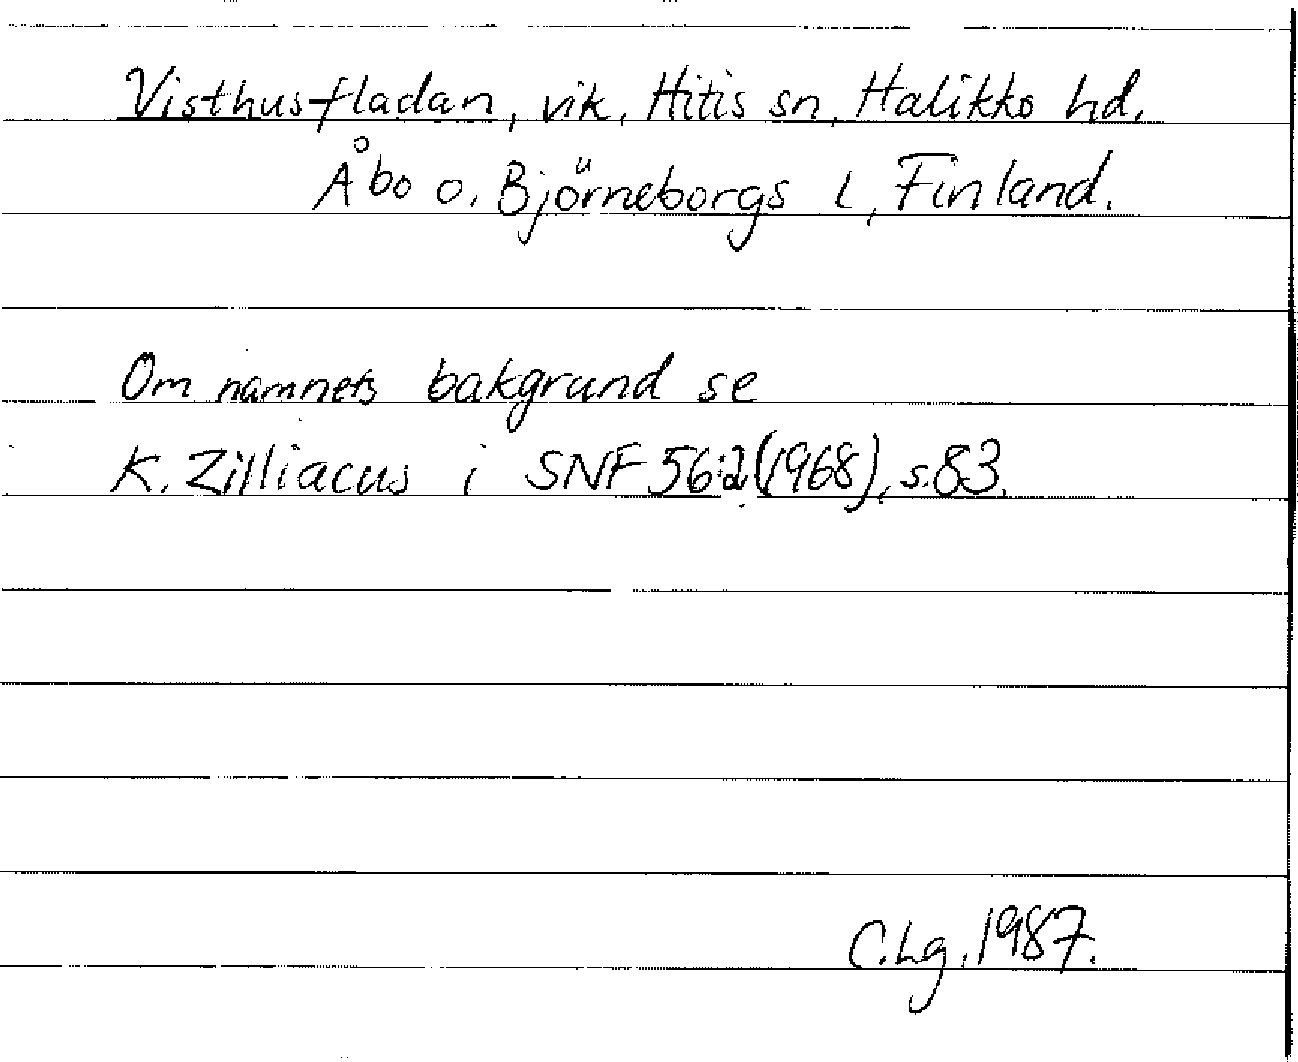 Visthusfladan, vik, Hitis sn, Halikko hd,
Åbo o. Björneborgs l, Finland.
Om namnets bakgrund se
K. Zilliacus i SNF 56:2 (1968), s. 83.
C.Lg. 1987.